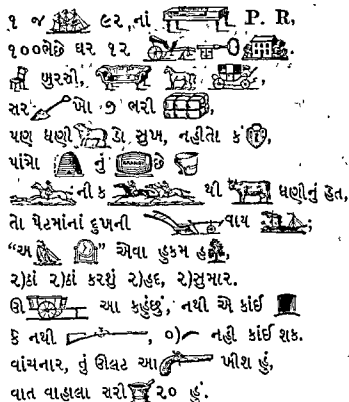 ૧ જ ૯૨, નાં P. R,
૧૦૦ભેછે ઘર ૧૨
ખુરચી,
સર ખા ૭ ભરી
પણ ધણી હો સુખ, નહીતો કં
પાંસો નું છે
ની ક થી ધણીનું હેત,
તો પેટમાંનાં દુખની વાય ;
"અ " એવા હુકમ હ ,
૨)ઠાં ૨)ઠાં કરશું ૨)હદ, ૨)સુમાર.
ઊ આ કહુંછું, નથી એ કાંઈ
કે નથી , ૦)~ નહી કાંઈ શક.
વાંચનાર, તું ઊલટ આ ખીશ હું,
વાત વાહાલા સરી ૨૦ હું.